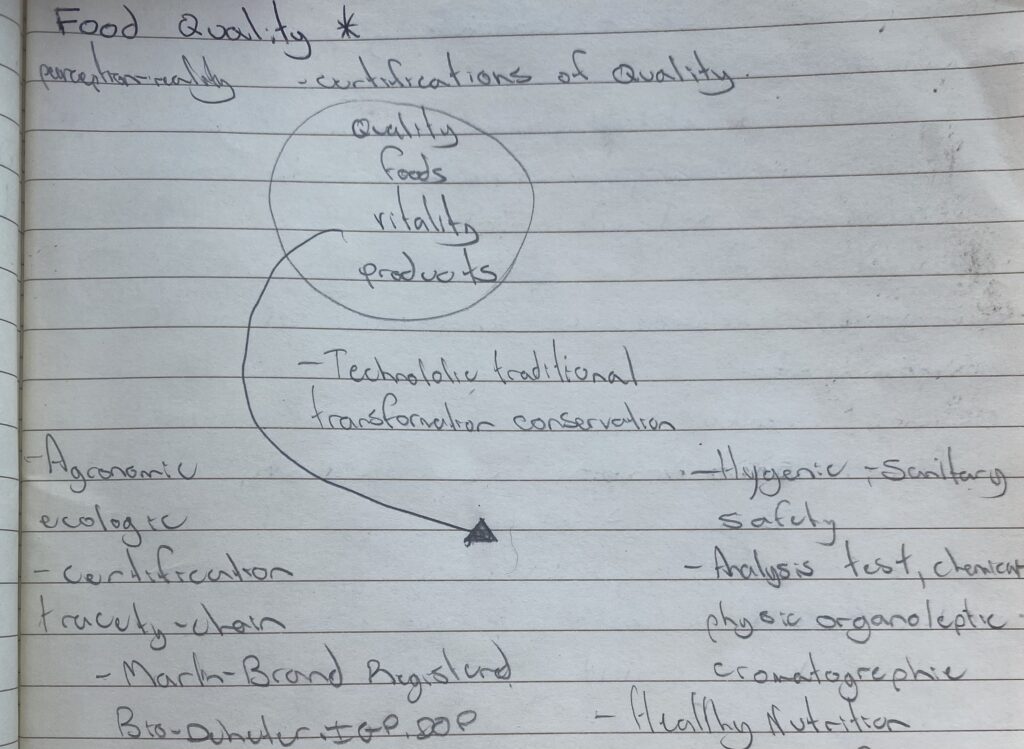 Food Quality *
perception-reality - certifications of Quality.
Quality
foods
vitality
products
- Technololic traditional
transformation conservation
- Agronomic
ecologic
- certification
tracety-chain
- Mark-Brand Registerd
Bio- IGP, DOP
- Hygenic - Sanitary
safety
- Analysis test, chemical
physic organoleptic
cromatographie
- Healthy Nutrition